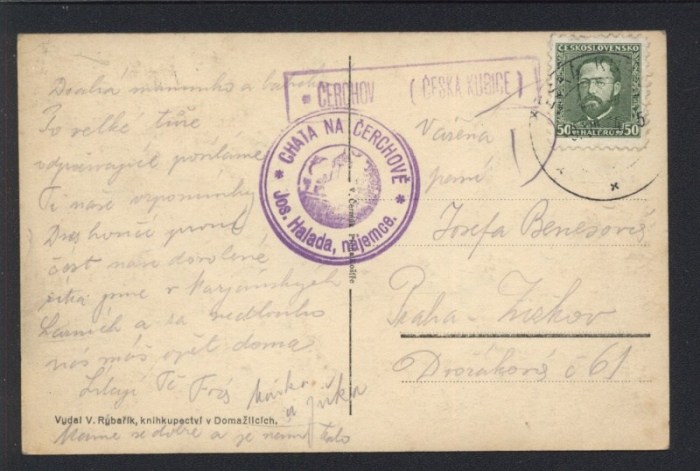 Drahá maminko a
Po velké túře
odpočívajíce posíláme
Ti naše vzpomínky
Dnes končí první
část naše dovolené
zítra jsme v Marjánských
Lázních a za
nás máš opět doma
Líbají Tě
a Jirka
Máme se dobře a je nám
Vydal V. Rybařík, knihkupectví v Domažlicích.
ČERCHOV (ČESKÁ KUBICE)
* CHATA NA ČERCHOVĚ *
Jos. Halada, nájemce.
ČESKOSLOVENSKO
50 HALÉŘŮ 50
Vážená
paní
Josefa Benešová
Praha - Žižkov
Dvořákova č 61